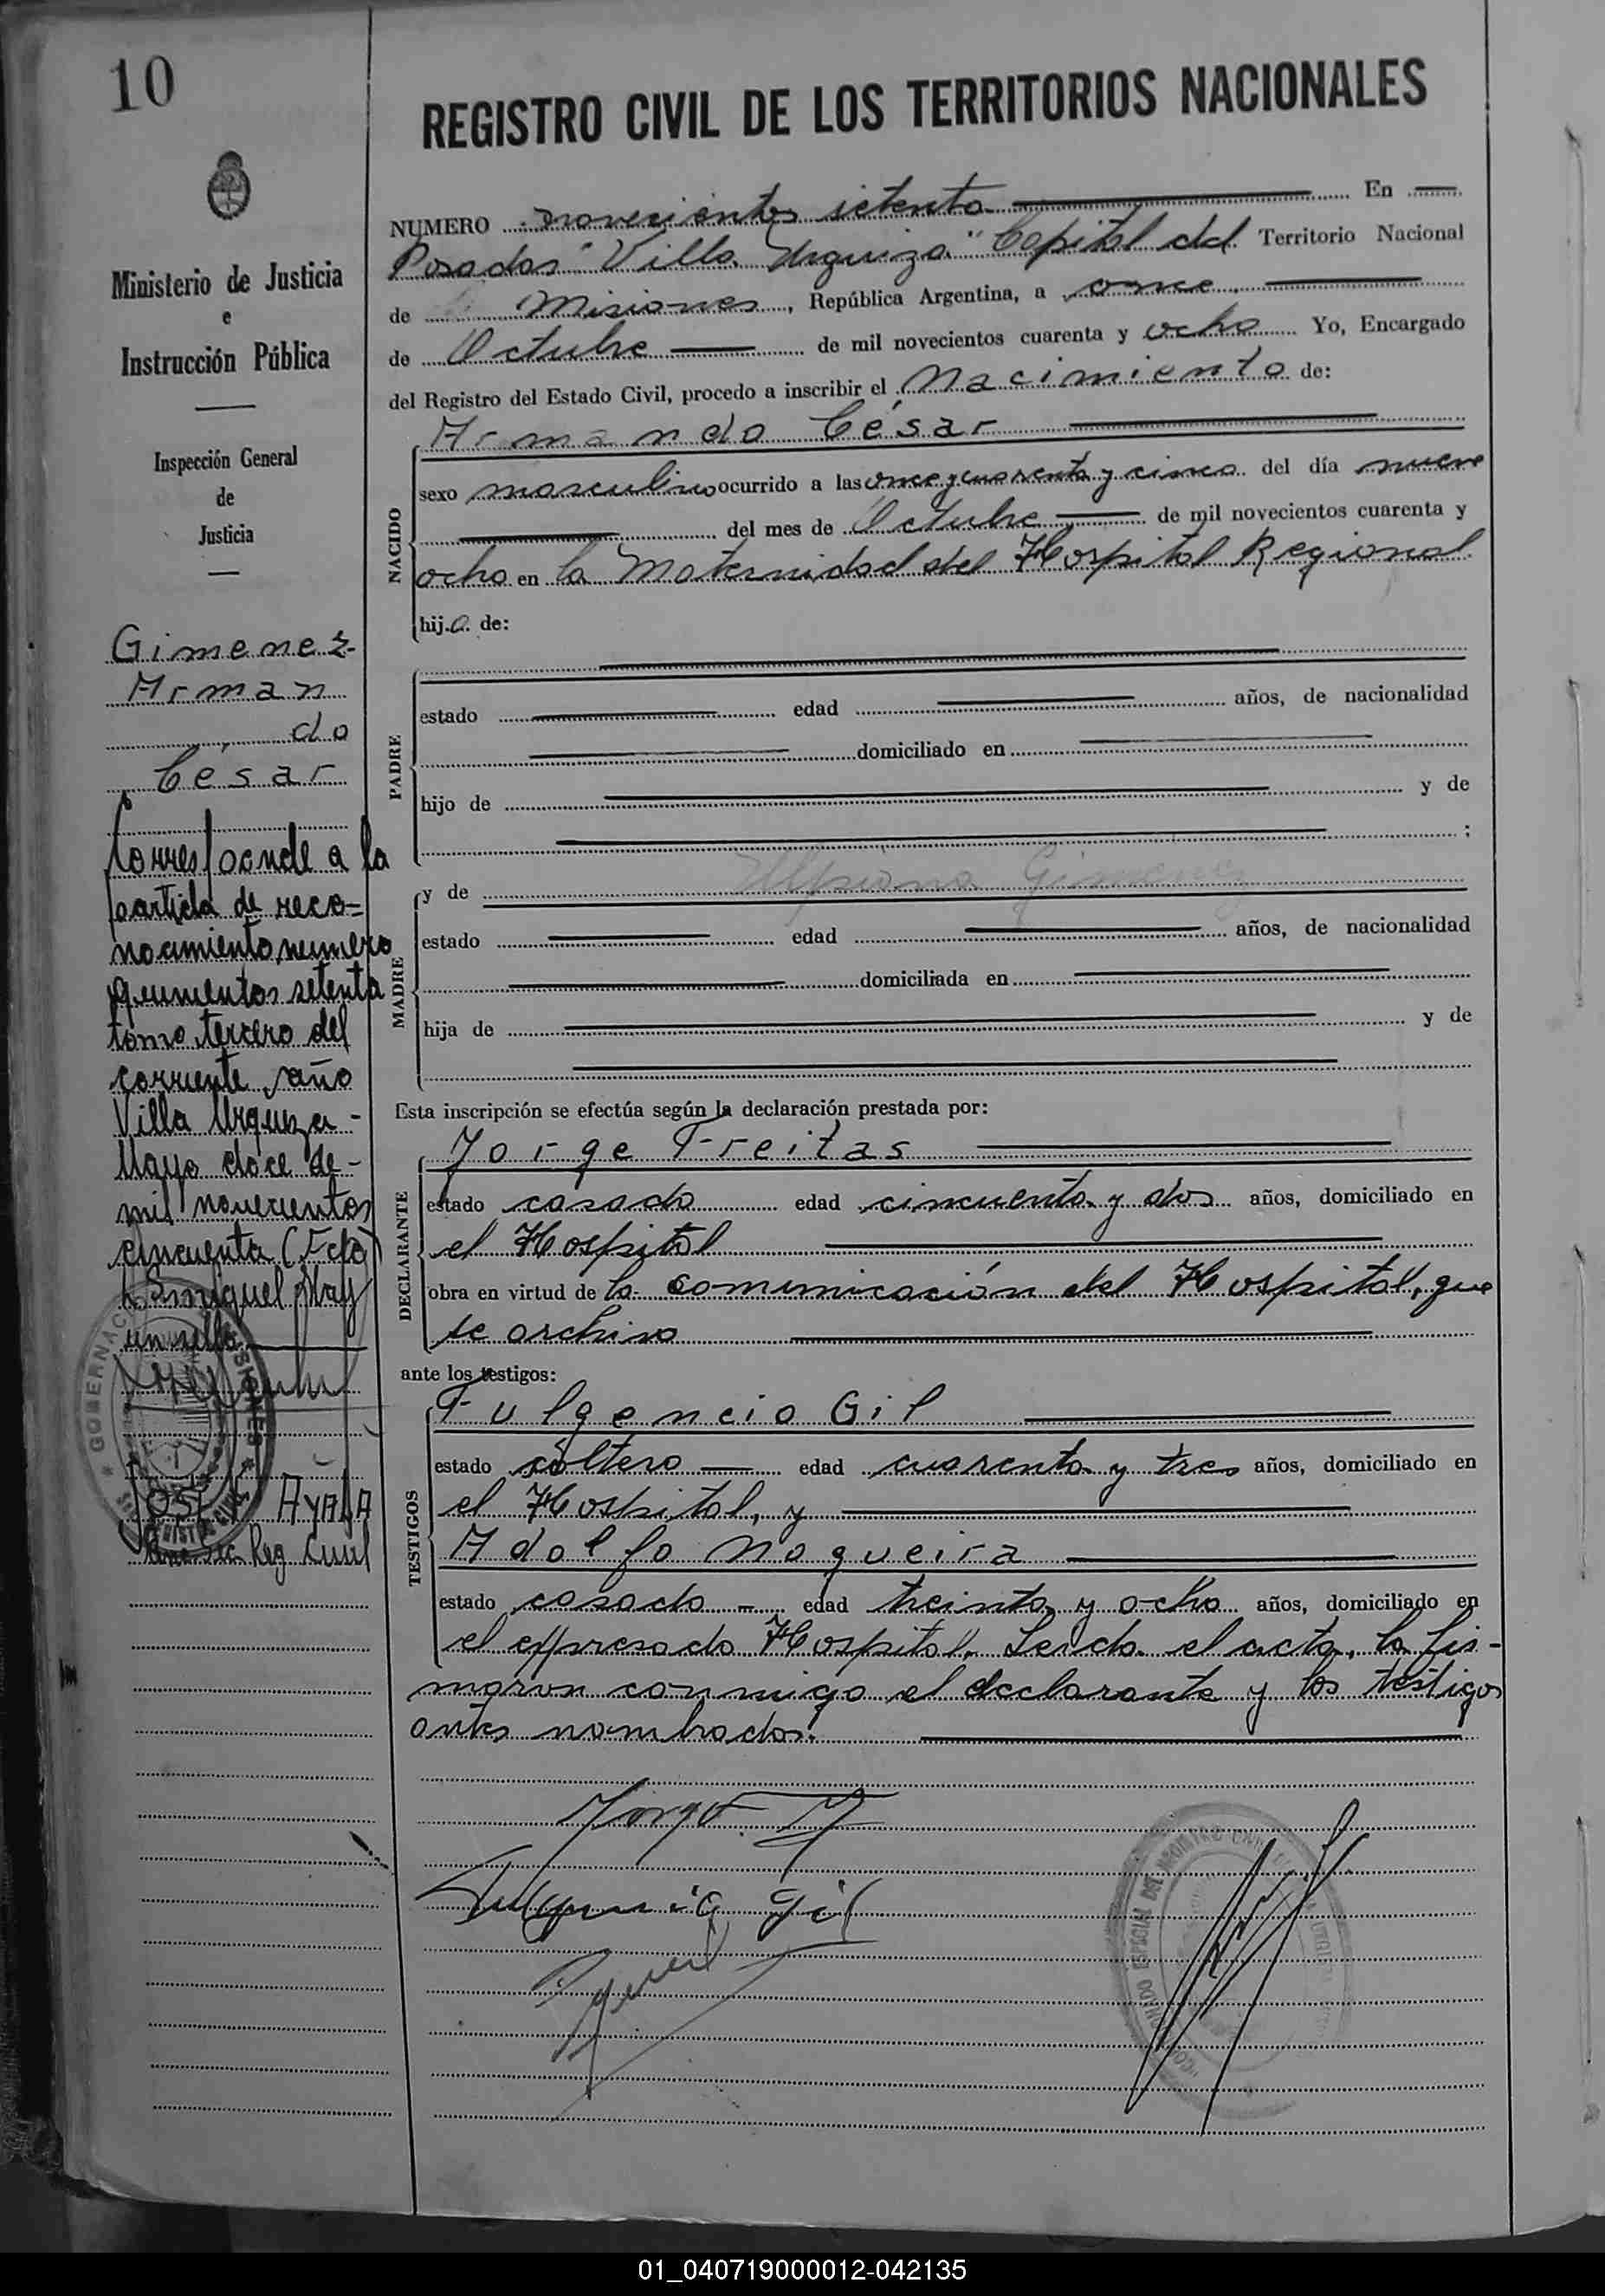 10
REGISTRO CIVIL DE LOS TERRITORIOS NACIONALES
Ministerio de Justicia
e
Instrucción Pública
Inspección General
de
Justicia
Gimenez
Arman
do
César
Corresponde a la
partida de reco=
nocimiento numero
quinientos setenta
tomo tercero del
corriente año
Villa Urquiza -
Mayo doce de -
mil novecientos
cincuenta (Fdo)
un sello
Ayala
Reg. Civil
NUMERO novecientos setenta En
Posadas "Villa Urquiza" Capital del Territorio Nacional
de Misiones, República Argentina, a once
de Octubre de mil novecientos cuarenta y ocho Yo, Encargado
del Registro del Estado Civil, procedo a inscribir el Nacimiento de:
NACIDO
Armando César
sexo masculino ocurrido a las once y cuarenta y cinco del día nueve
del mes de Octubre de mil novecientos cuarenta y
ocho en la Maternidad del Hospital Regional
hijo de:
PADRE
estado edad años, de nacionalidad
domiciliado en
hijo de y de
;
MADRE
y de Ulpiana Gimenez
estado edad años, de nacionalidad
domiciliada en
hija de y de
Esta inscripción se efectúa según la declaración prestada por:
DECLARANTE
Jorge Freitas
estado casado edad cincuenta y dos años, domiciliado en
el Hospital
obra en virtud de la comunicación del Hospital, que
se archiva
ante los testigos:
TESTIGOS
Fulgencio Gil
estado soltero edad cuarenta y tres años, domiciliado en
el Hospital, y
Adolfo Nogueira
estado casado edad treinta y ocho años, domiciliado en
el expresado Hospital. Leida el acta, la fir-
maron conmigo el declarante y los testigos
antes nombrados.
Jorge F
Fulgencio Gil
01_040719000012-042135